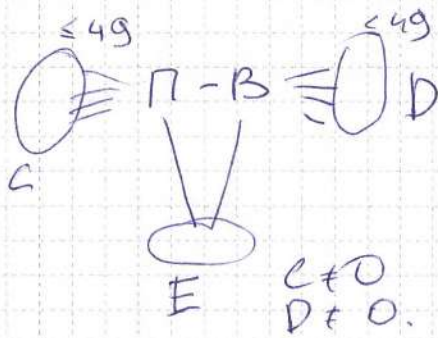 ≤ 49 ≤ 49
П - В
C D
E
C ≠ 0
D ≠ 0.